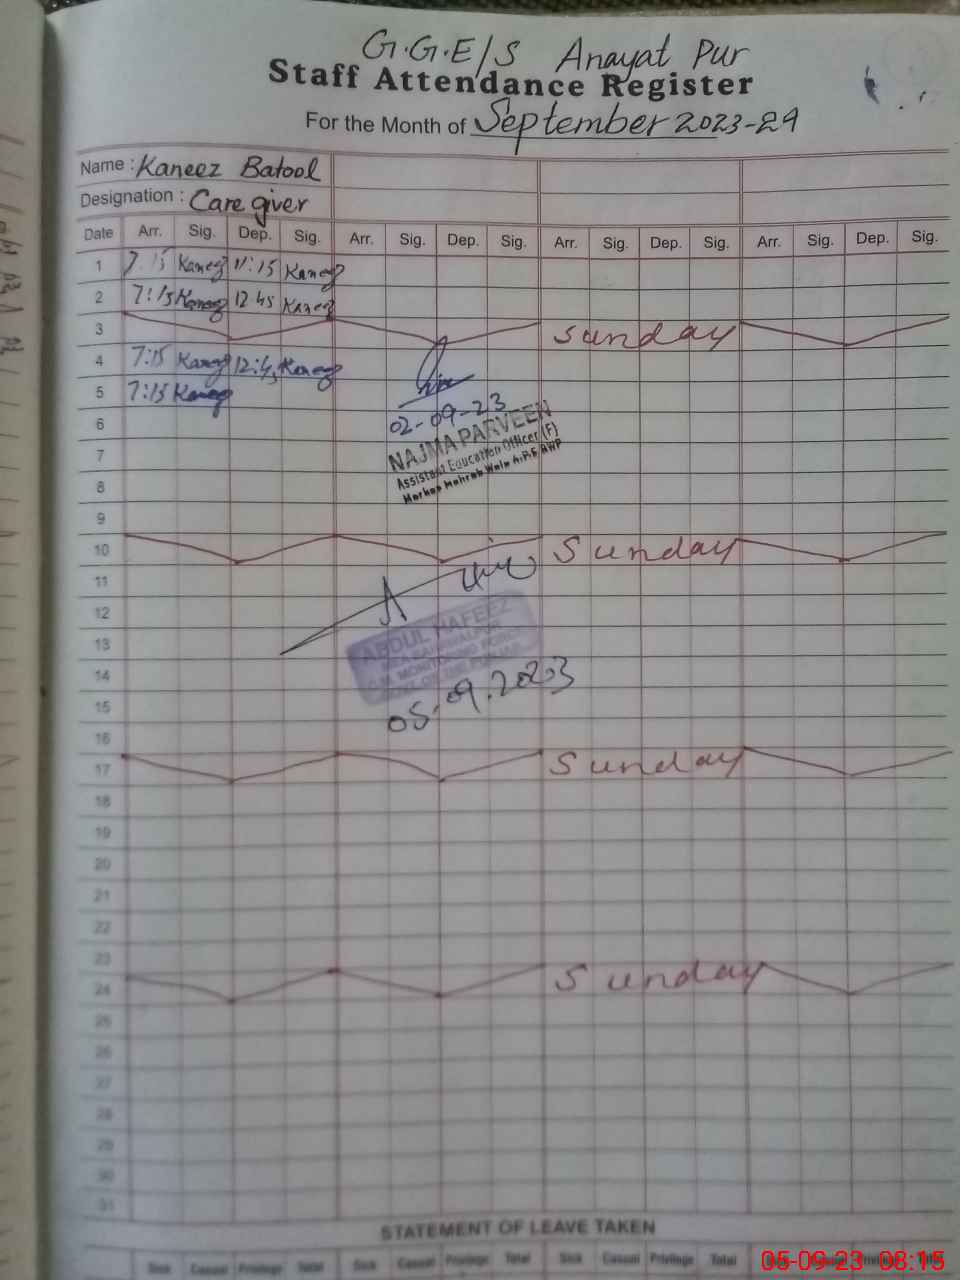 G.G.E/S Anayat Pur
Staff Attendance Register
For the Month of September 2023-24
Name : Kaneez Batool
Designation : Care giver
Date Arr. Sig. Dep. Sig. Arr. Sig. Dep. Sig. Arr. Sig. Dep. Sig. Arr. Sig. Dep. Sig.
1 7.15 Kaneez 11:15 Kaneez
2 7:15 Kaneez 12 45 Kaneez
3 Sunday
4 7:15 Kaneez 12:45 Kaneez
5 7:15 Kaneez
02-09-23
6
NAJMA PARVEEN
7
Assistant Education Officer (F)
8
9
10 Sunday
11
12
ABDUL HAFEEZ
13
14
05.09.2023
15
16
17 Sunday
18
19
20
21
22
23
24 Sunday
25
26
27
28
29
30
31
STATEMENT OF LEAVE TAKEN
Sick Casual Privilege Total Sick Casual Privilege Total
05-09-23 08:15